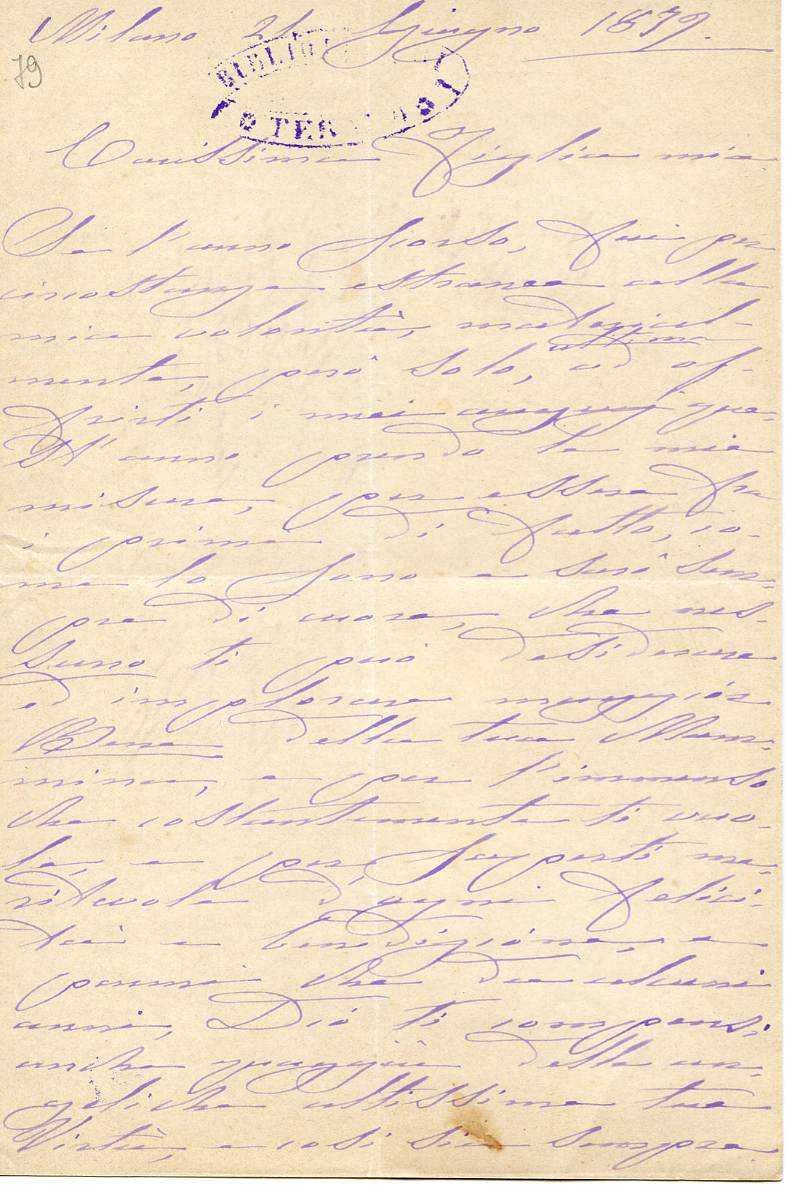 Milano 21 Giugno 1879.
79
BIBLIO
TER
Carissima Figlia mia
Se l'anno scorso, fui per
circostanze estranee alla
mia volontà, material-
mente, però solo, ultima
ad of-
frirti i miei augurj que-
st'anno prendo le mie
misure, per essere fra
i primi di fatto, co-
me lo sono e sarò sem-
pre di cuore, che nes-
suno ti può desiderare
ed implorare maggior
Bene della tua Mam-
mina, e per l'immenso
che costantemente ti vuo-
le, e per saperti me-
ritevole d'ogni felici-
tà e benedizione, e
parmi che da alcuni
anni, Dio ti compensi
anche quaggiù della an-
gelica altissima tua
Virtù, e così sia sempre